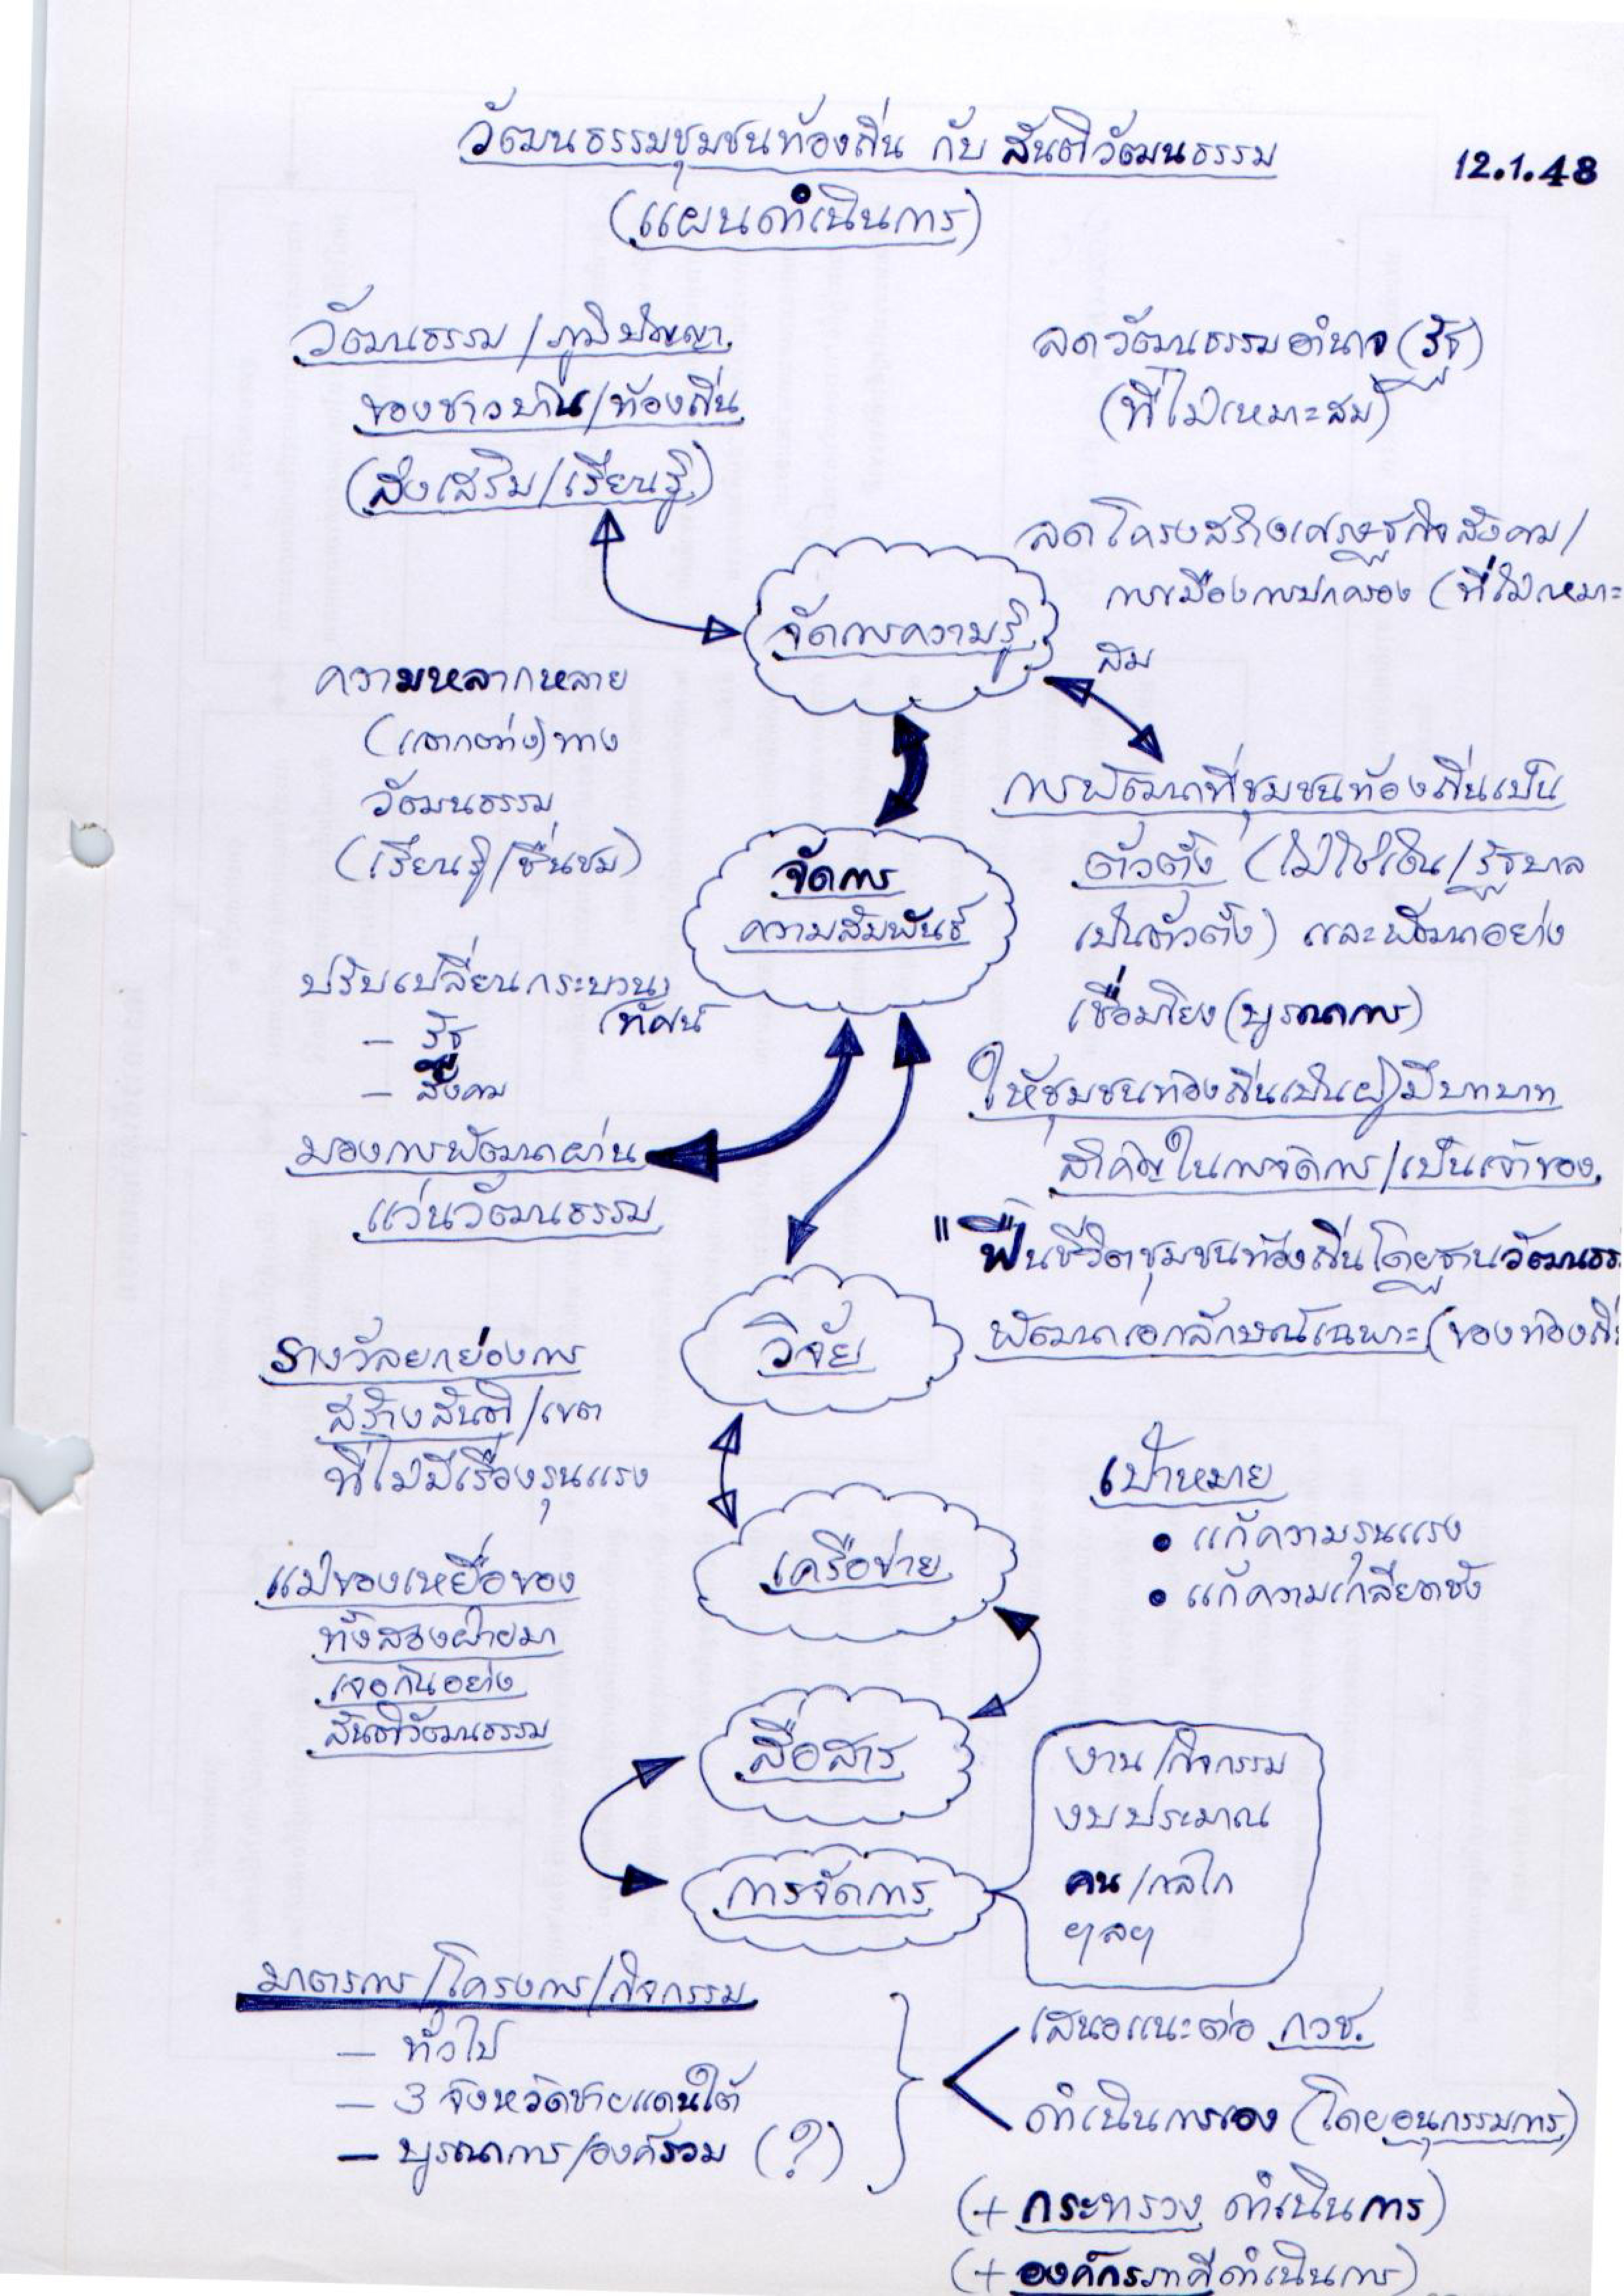 วัฒนธรรมชุมชนท้องถิ่น กับ สันติวัฒนธรรม
12.1.48
(แผนดำเนินการ)
วัฒนธรรม/ภูมิปัญญา
ของชาวบ้าน/ท้องถิ่น
(ส่งเสริม/เรียนรู้)
ลดวัฒนธรรมอำนาจ (รัฐ)
(ที่ไม่เหมาะสม)
ลดโครงสร้างเศรษฐกิจสังคม/
การเมืองการปกครอง (ที่ไม่เหมาะ
สม
จัดการความรู้
ความหลากหลาย
(แตกต่าง) ทาง
วัฒนธรรม
(เรียนรู้/ชื่นชม)
การพัฒนาที่ชุมชนท้องถิ่นเป็น
ตัวตั้ง (ไม่ใช่เงิน/รัฐบาล
เป็นตัวตั้ง) และพัฒนาอย่าง
เชื่อมโยง (บูรณาการ)
จัดการ
ความสัมพันธ์
ปรับเปลี่ยนกระบวน
ทัศน์
– รัฐ
– สังคม
มองการพัฒนาผ่าน
แว่นวัฒนธรรม
ให้ชุมชนท้องถิ่นเป็นผู้มีบทบาท
สำคัญในการจัดการ/เป็นเจ้าของ
"ฟื้นชีวิตชุมชนท้องถิ่นโดยฐานวัฒนธร
พัฒนาเอกลักษณ์เฉพาะ (ของท้องถิ่
วิจัย
รางวัลยกย่องการ
สร้างสันติ/เขต
ที่ไม่มีเรื่องรุนแรง
เครือข่าย
เป้าหมาย
• แก้ความรุนแรง
• แก้ความเกลียดชัง
แม่ของเหยื่อของ
ทั้งสองฝ่ายมา
เจอกันอย่าง
สันติวัฒนธรรม
สื่อสาร
การจัดการ
งาน/กิจกรรม
งบประมาณ
คน/กลไก
ฯลฯ
มาตรการ/โครงการ/กิจกรรม
– ทั่วไป
– 3 จังหวัดชายแดนใต้
– บูรณาการ/องค์รวม (?)
เสนอแนะต่อ กวช.
ดำเนินการเอง (โดยอนุกรรมการ)
(+ กระทรวง ดำเนินการ)
(+ องค์กรภาคีดำเนินการ)